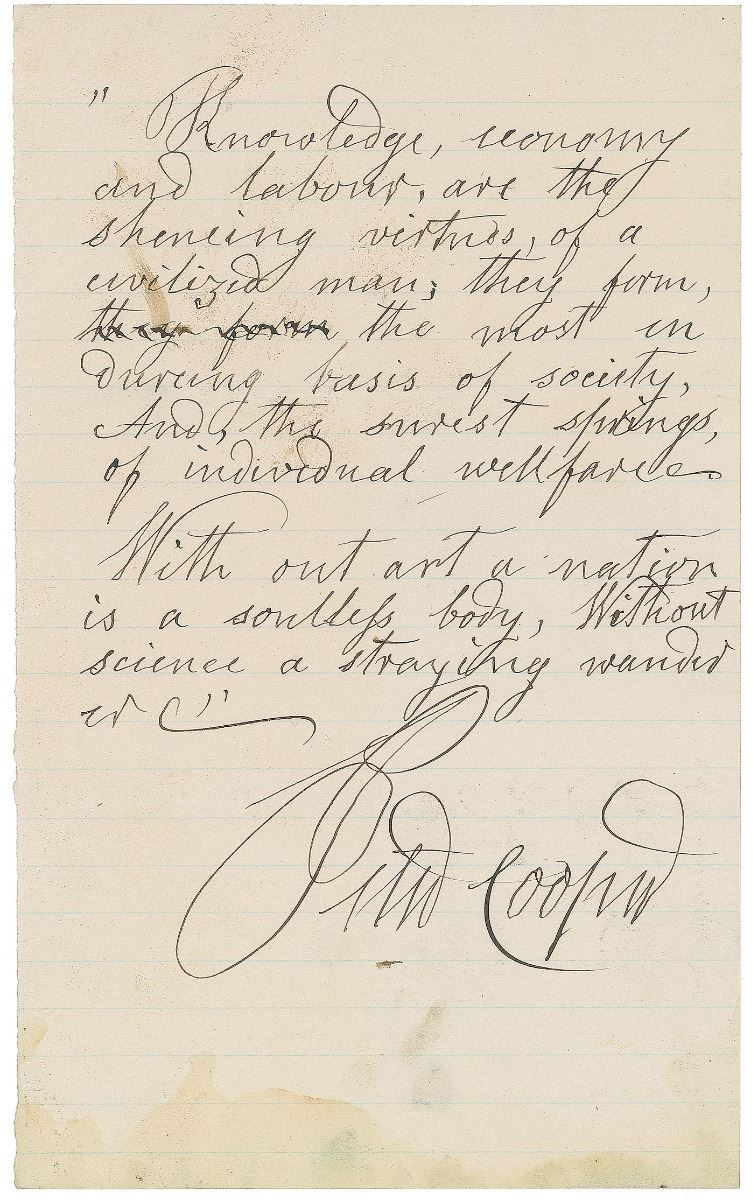 " Knowledge, economy
and labour, are the
sheneing virtues, of a
civilized man; they form,
they form the most en
dureing basis of society,
And, the surest springs,
of individual wellfare.
With out art a nation
is a soulless body, Without
science a straying wander
er "
Peter Cooper